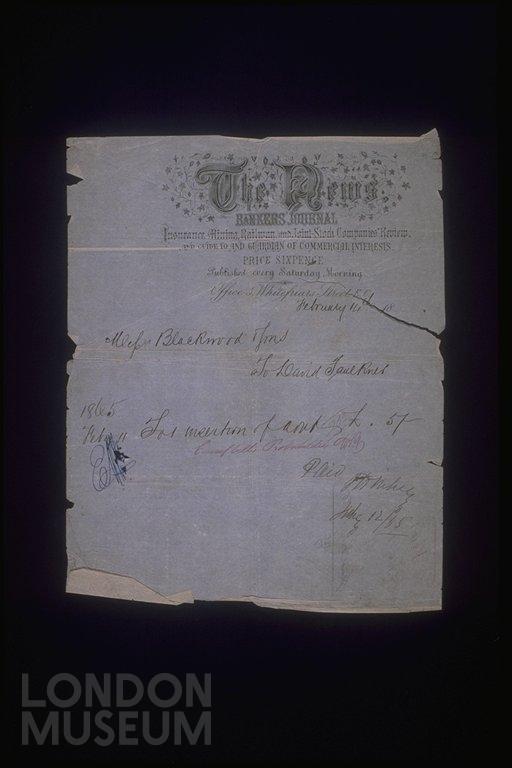 The News
BANKERS JOURNAL
Insurance, Mining, Railway, and Joint-Stock Companies' Review,
AND GUIDE TO AND GUARDIAN OF COMMERCIAL INTERESTS
PRICE SIXPENCE
Published every Saturday Morning
Office 3, Whitefriars Street E.C.
February 18
Messrs Blackwood & Sons
To David Faulkner
1865
Feby 11 For insertion of advt 5/-
Paid
12/65
LONDON
MUSEUM